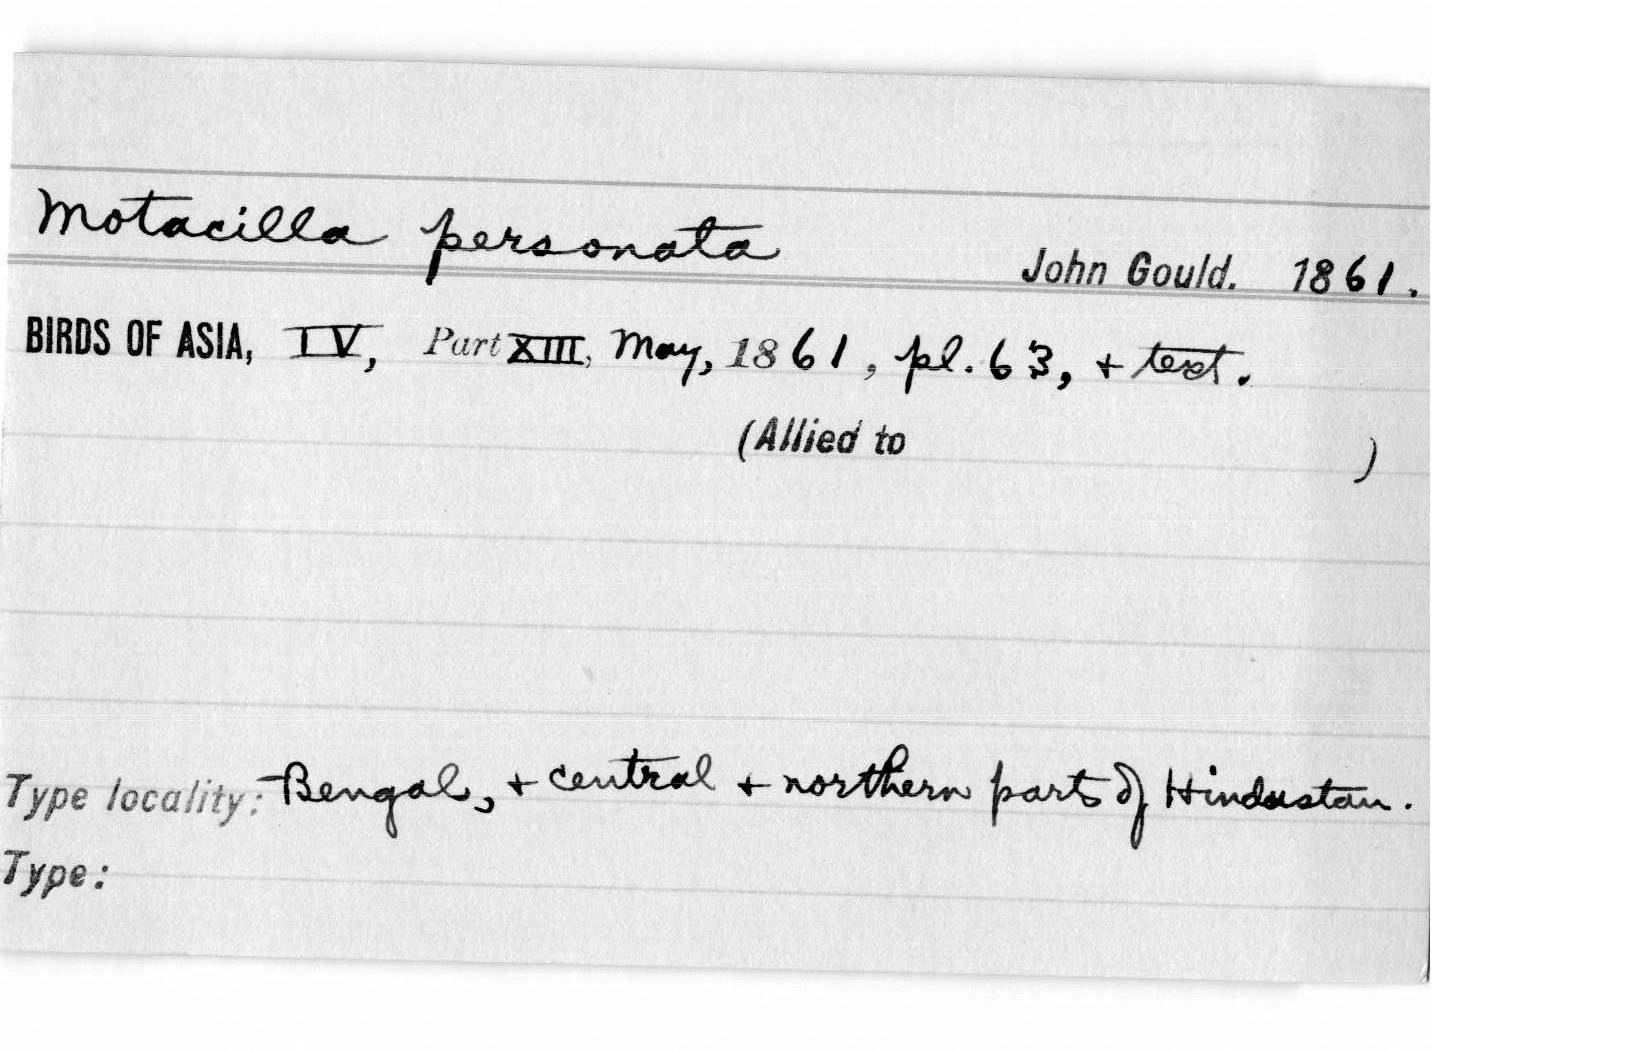 Motacilla personata John Gould. 1861.
BIRDS OF ASIA, IV, Part XIII, May, 1861, pl. 63, + text.
(Allied to )
Type locality: Bengal, + central + northern parts of Hindustan.
Type: